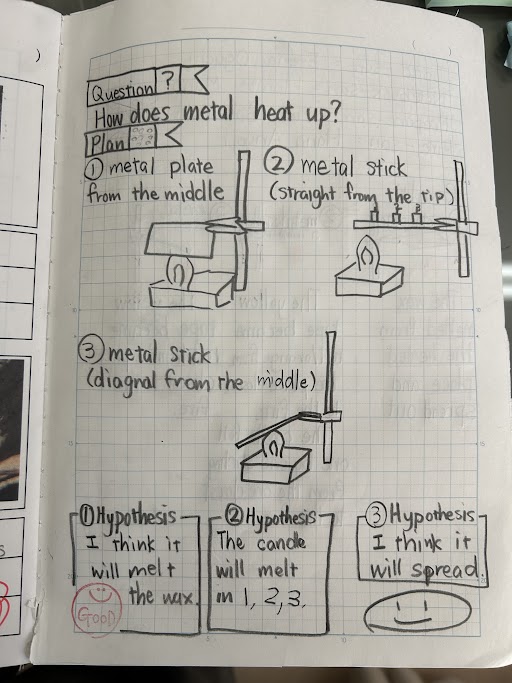 Question ?
How does metal heat up?
Plan
① metal plate
from the middle
② metal stick
(straight from the tip)
1 2 3
③ metal stick
(diagnal from the middle)
① Hypothesis
I think it
will melt
the wax.
GOOD
② Hypothesis
The candle
will melt
in 1, 2, 3.
③ Hypothesis
I think it
will spread.